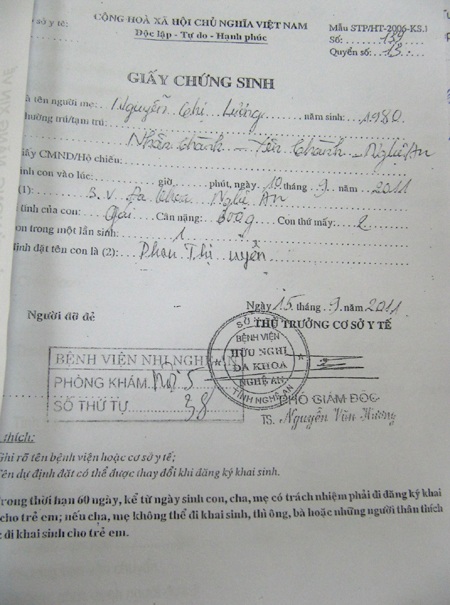 sở y tế:
CỘNG HOÀ XÃ HỘI CHỦ NGHĨA VIỆT NAM
Độc lập - Tự do - Hạnh phúc
Mẫu STP/HT-2006-KS.1
Số: 139
Quyển số: 13
GIẤY CHỨNG SINH
à tên người mẹ: Nguyễn Thị Lương năm sinh: 1980
hường trú/tạm trú:
Nhân Thành - Yên Thành - Nghệ An
iấy CMND/Hộ chiếu:
inh con vào lúc: giờ phút, ngày 10 tháng 9 năm 2011
(1): B.V. Đa Khoa Nghệ An
tính của con: Gái Cân nặng: 800g Con thứ mấy: 2
on trong một lần sinh: 1
đặt tên con là (2): Phan Thị uyên
Ngày 15 tháng 9 năm 2011
Người đỡ đẻ
THỦ TRƯỞNG CƠ SỞ Y TẾ
SỞ Y TẾ
BỆNH VIỆN
HỮU NGHỊ
ĐA KHOA
NGHỆ AN
TỈNH NGHỆ AN
BỆNH VIỆN NHI NGHỆ AN
PHÒNG KHÁM Nội 5
SỐ THỨ TỰ 38
PHÓ GIÁM ĐỐC
TS. Nguyễn Văn Hương
thích:
Ghi rõ tên bệnh viện hoặc cơ sở y tế;
ên dự định đặt có thể được thay đổi khi đăng ký khai sinh.
rong thời hạn 60 ngày, kể từ ngày sinh con, cha, mẹ có trách nhiệm phải đi đăng ký khai
cho trẻ em; nếu cha, mẹ không thể đi khai sinh, thì ông, bà hoặc những người thân thích
đi khai sinh cho trẻ em.